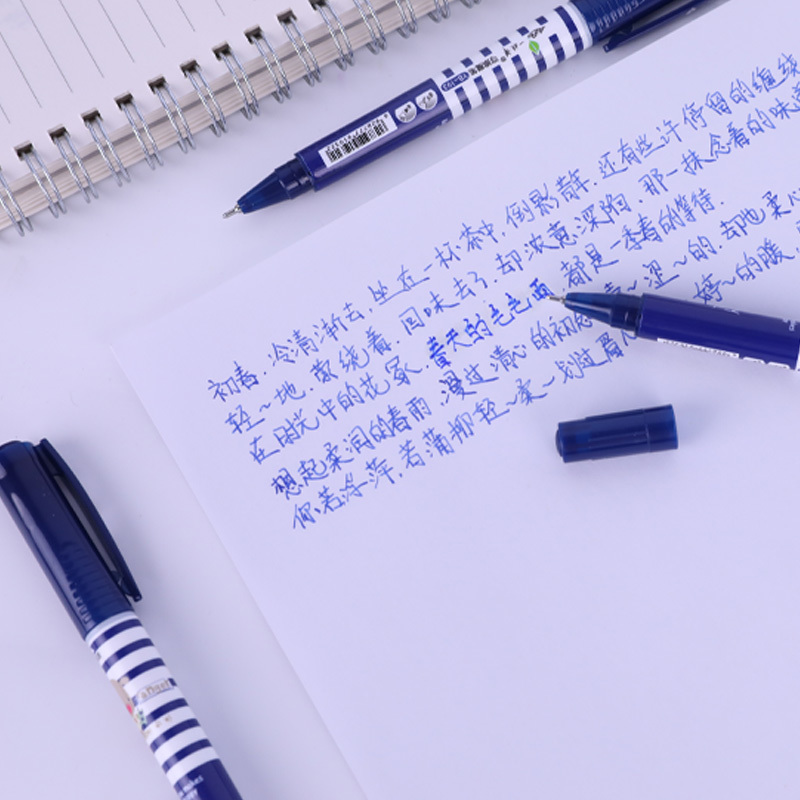 初春.冷清渐去.坐在一杯茶中.倒影静.还有些许停留的缠绕
轻~地.萦绕着.回味去了.却浓意深陷.那一抹念着的味道
在时光中的花冢.春天的毛毛雨 都是一季春的等待.
想起柔润的春雨.漫过清心的初 涩~的.却也柔心
你若浮萍.若蒲柳轻~柔~划过眉 婷~的暖